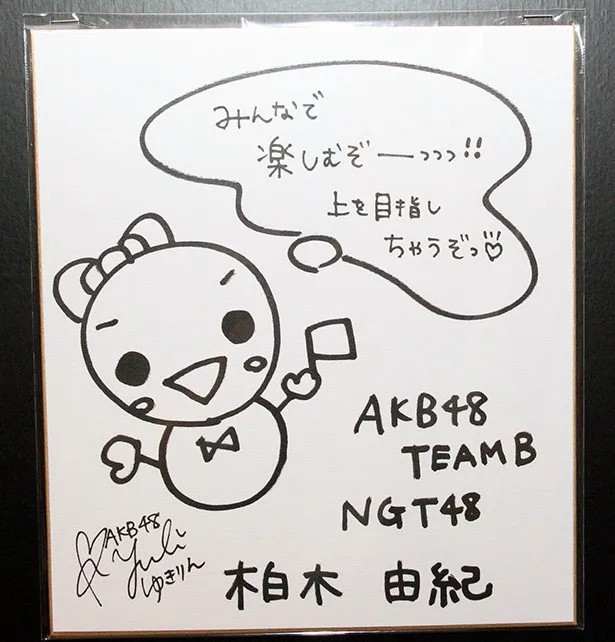 みんなで
楽しむぞーっっっ!!
上を目指し
ちゃうぞっ♡
AKB48
TEAM B
NGT48
AKB48
Yuki
ゆきりん
柏木 由紀